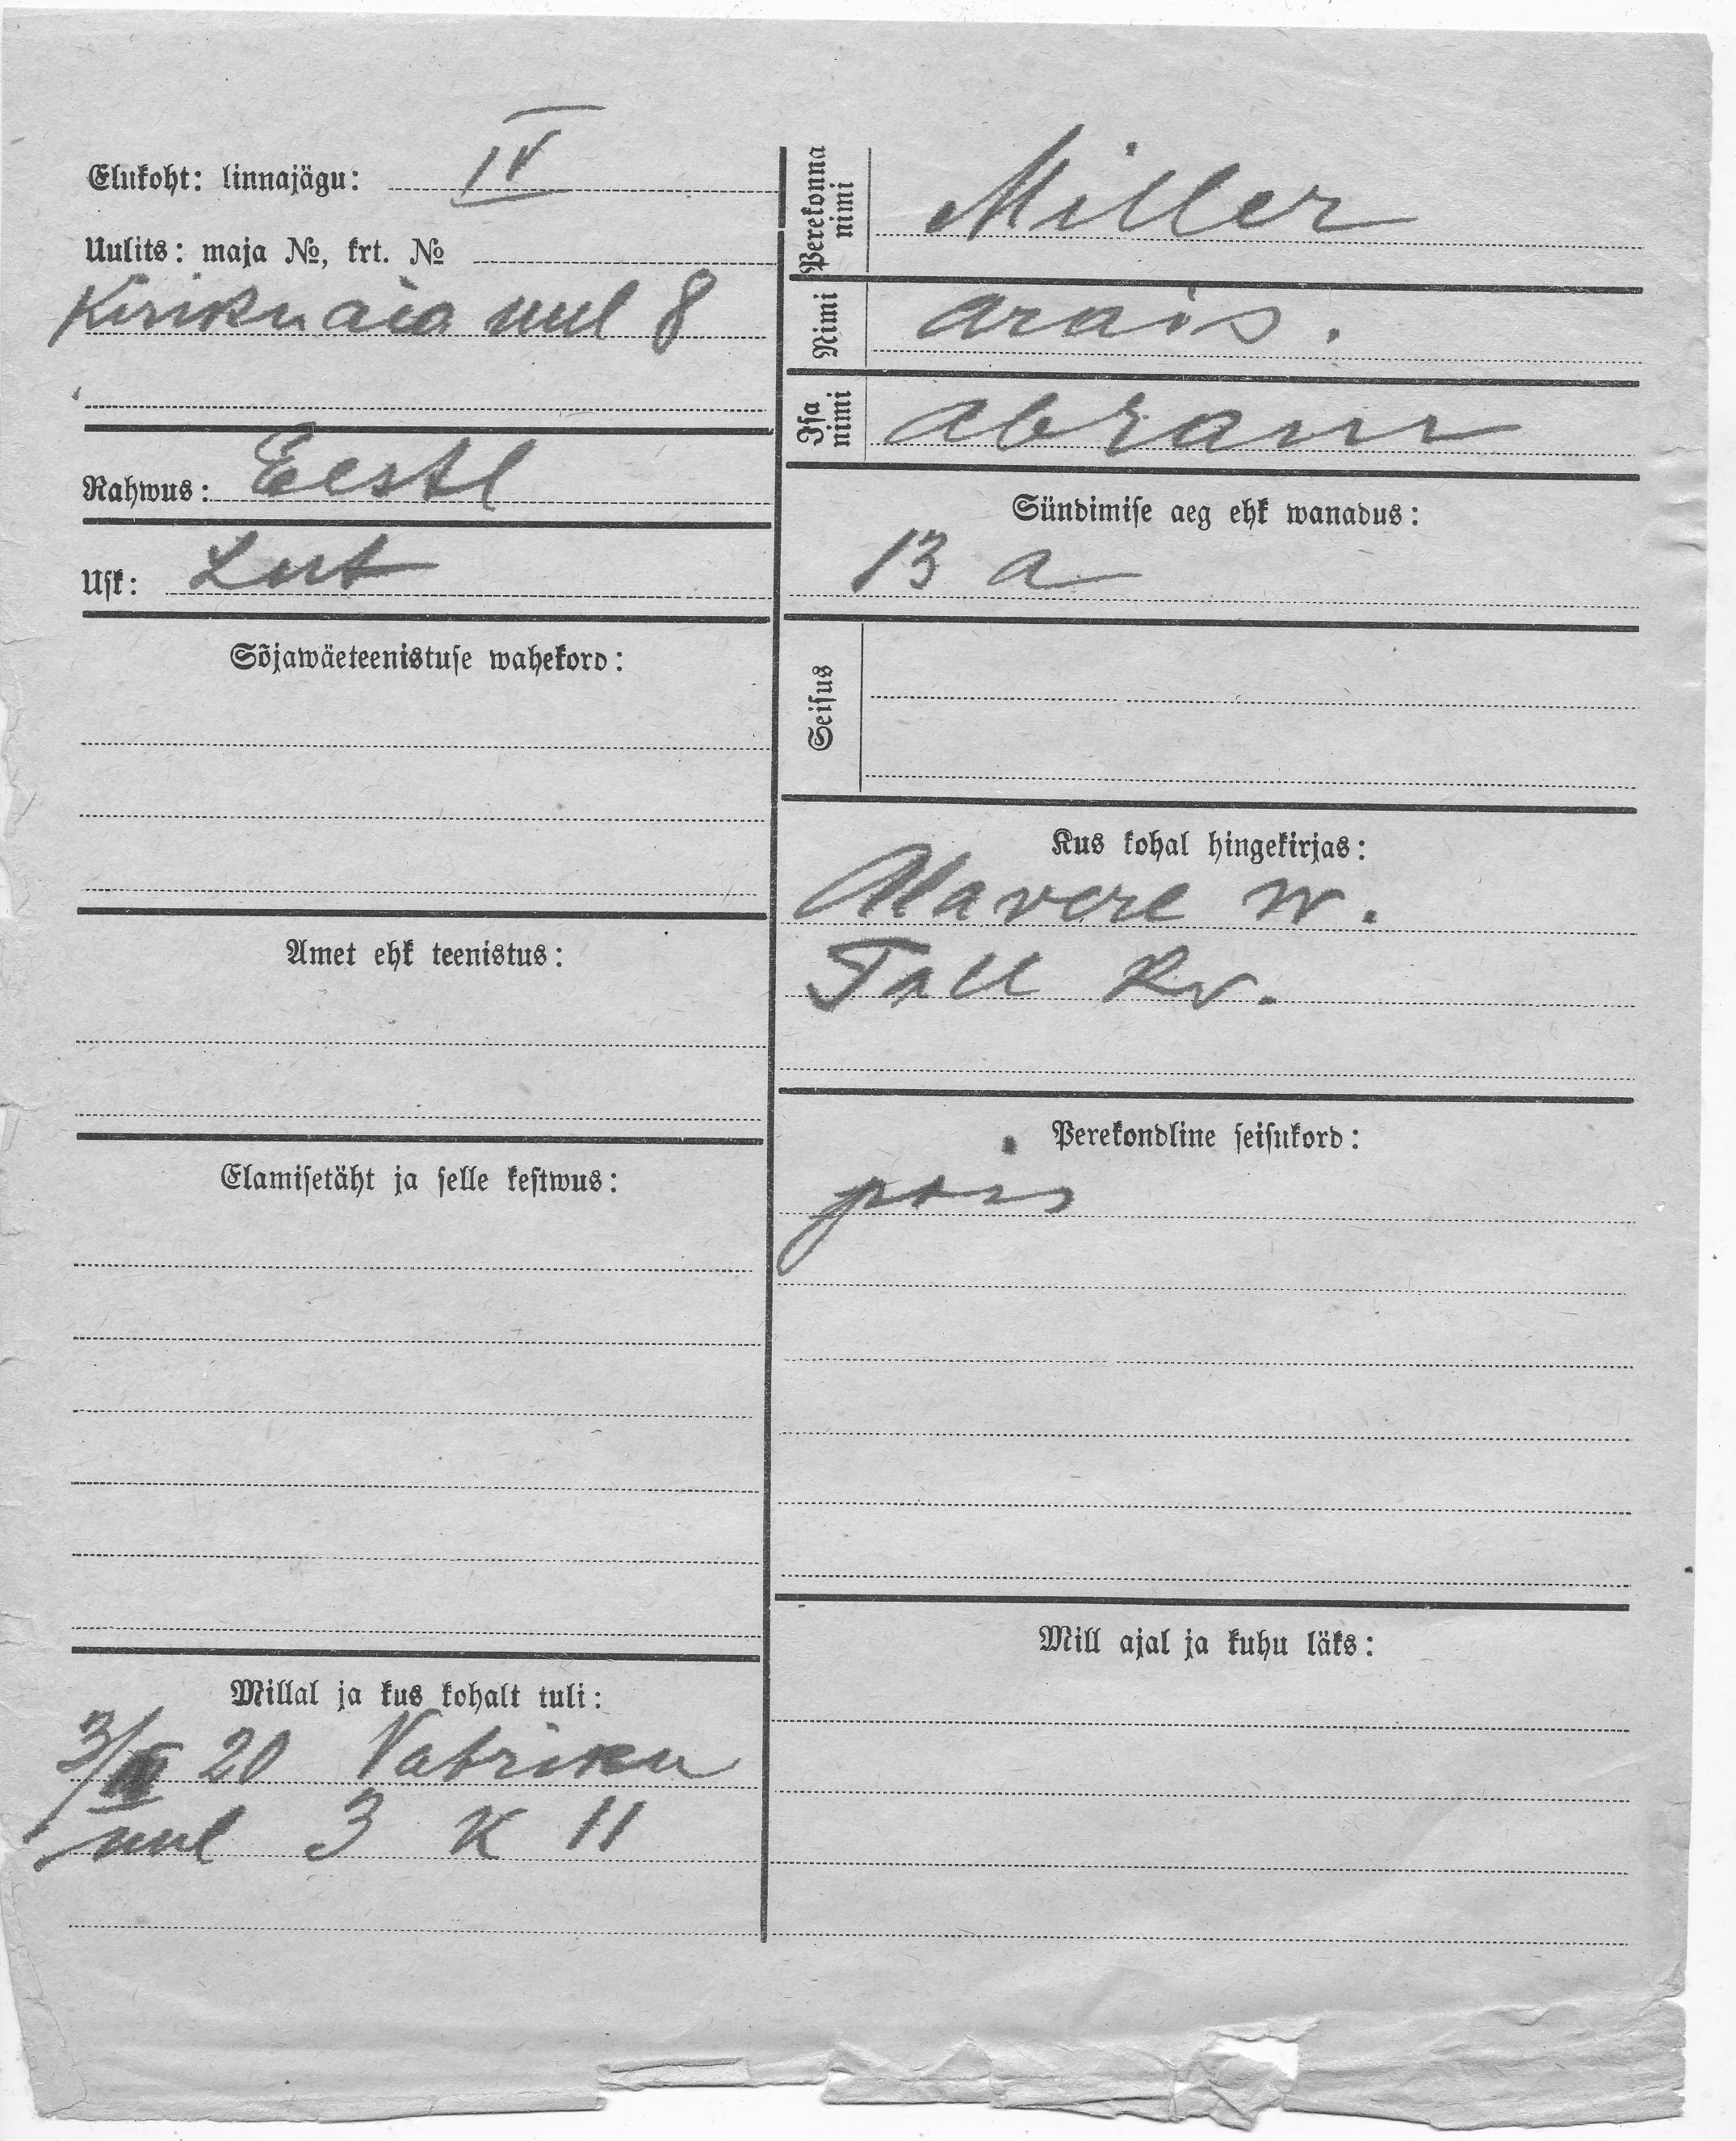 Elukoht: linnajägu: IV
Uulits: maja №, krt. №
Kirikuaia uul 8
Rahwus: Eestl
Usk: Lut
Sõjawäeteenistuse wahekord:
Amet ehk teenistus:
Elamisetäht ja selle kestwus:
Millal ja kus kohalt tuli:
3/III 20 Vabriku
uul 3 K 11
Perekonna nimi Miller
Nimi Arais.
Isa nimi Abram
Sündimise aeg ehk wanadus:
13 a
Seisus
Kus kohal hingekirjas:
Alavere w.
Tall Kr.
Perekondline seisukord:
pois
Mill ajal ja kuhu läks: